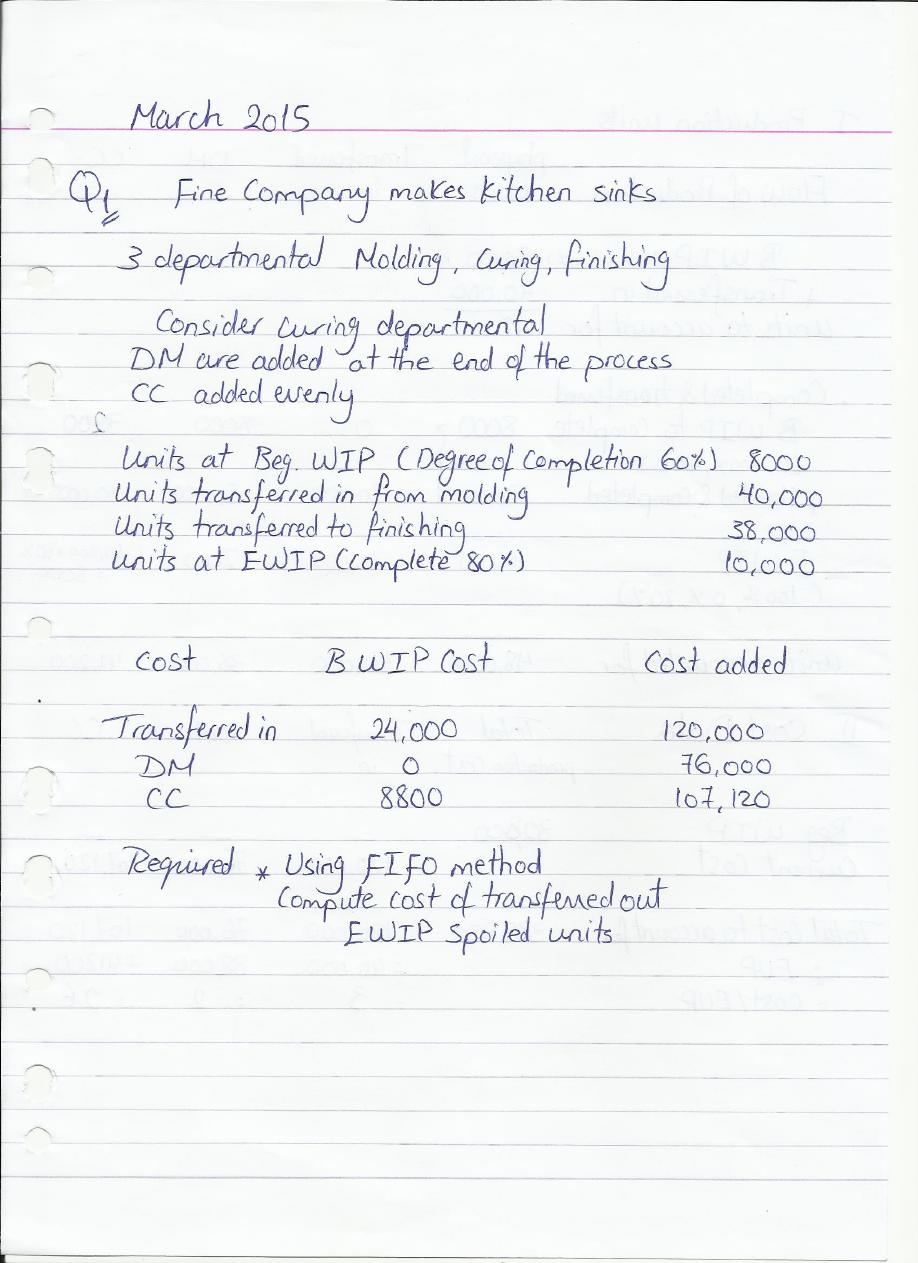 March 2015
Q1 Fine Company makes kitchen sinks
3 departmental Molding, Curing, finishing
Consider curing departmental
DM are added at the end of the process
CC added evenly
Units at Beg. WIP (Degree of Completion 60%) 8000
Units transferred in from molding 40,000
Units transferred to finishing 38,000
Units at EWIP (complete 80%) 10,000
Cost B WIP Cost Cost added
Transferred in 24,000 120,000
DM 0 76,000
CC 8800 107,120
Required * Using FIFO method
Compute cost of transferred out
EWIP Spoiled units